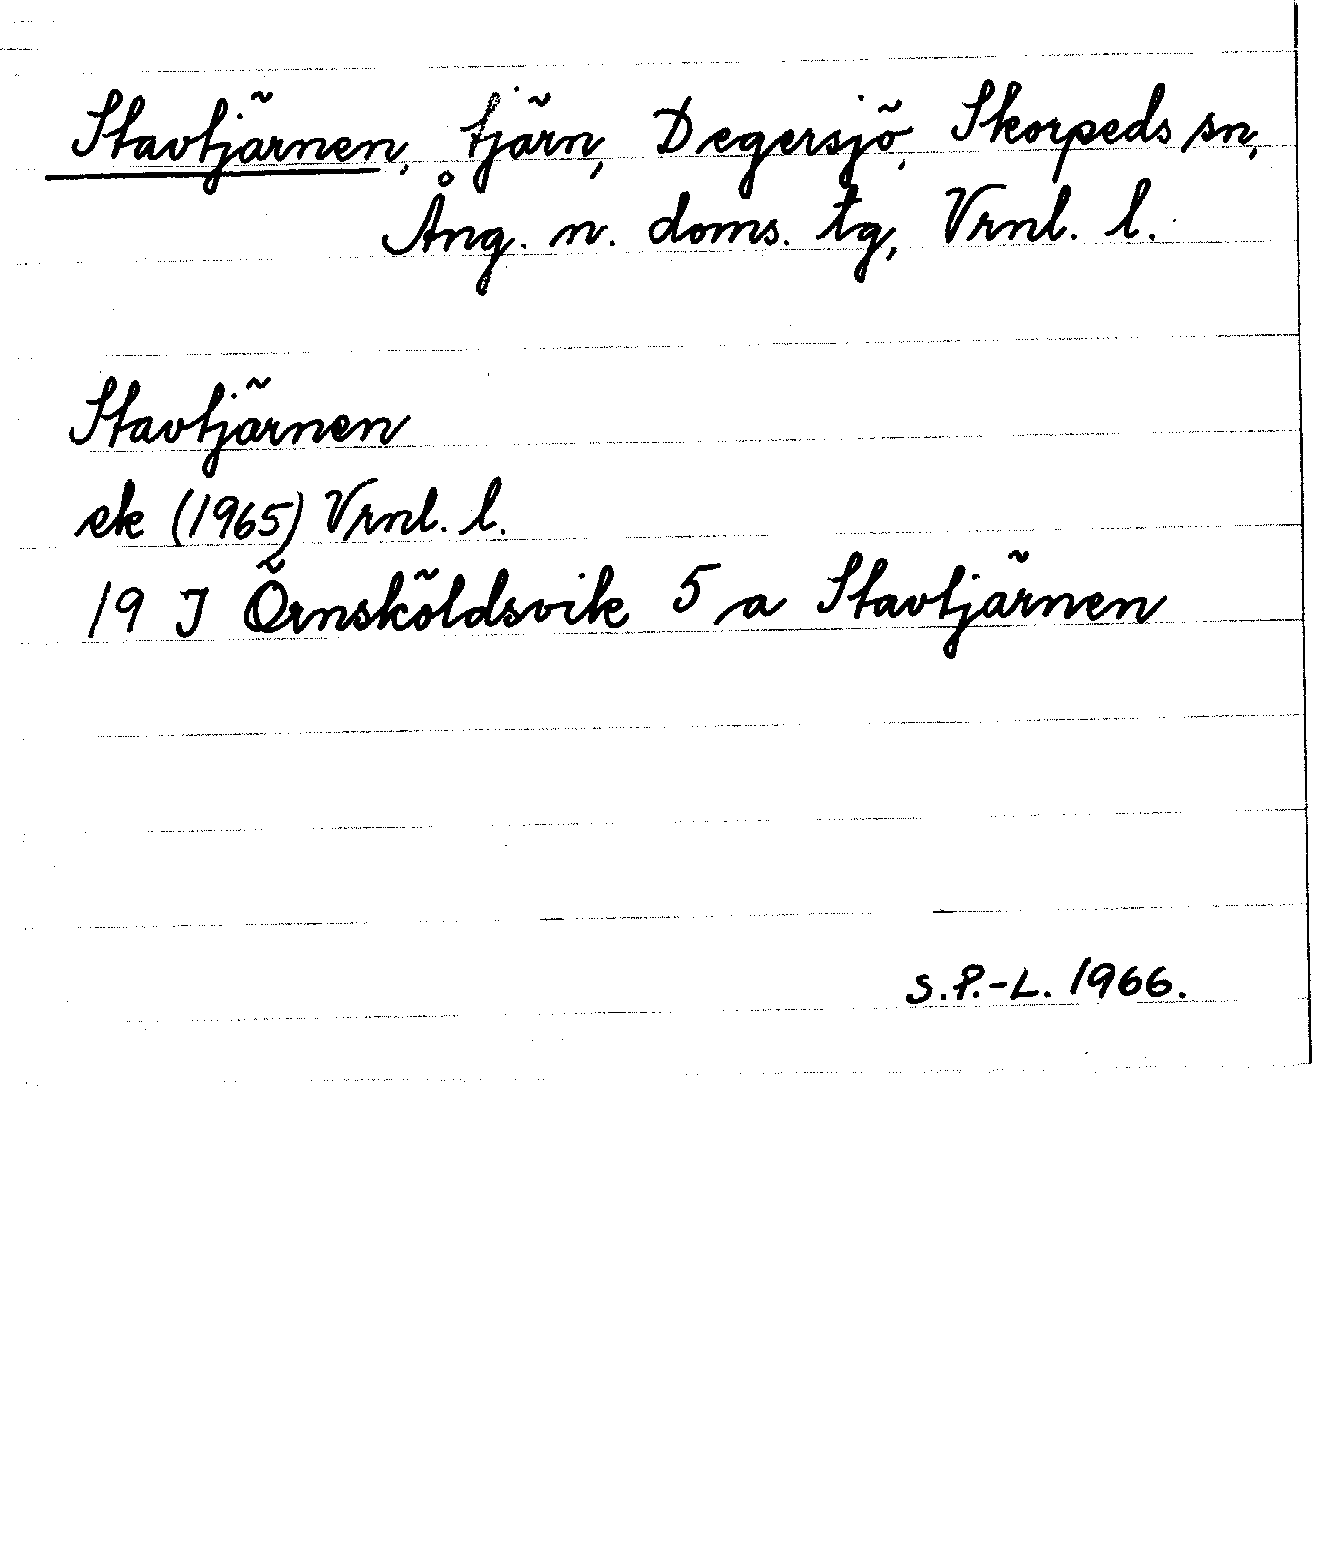 Stavtjärnen, tjärn, Degersjö, Skorpeds sn,
Ång. n. doms. tg, Vrnl. l.
Stavtjärnen
ek (1965) Vrnl. l.
19 J Örnsköldsvik 5 a Stavtjärnen
S.P.-L. 1966.